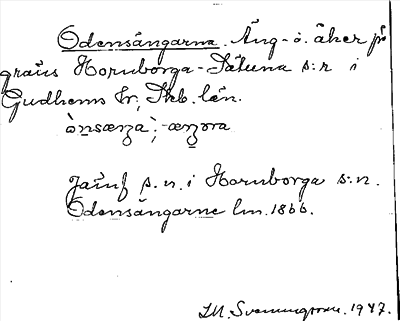 Odensängarna. Äng- o. åker på
gräns Hornborga-Sätuna s:r i
Gudhems hr, Skb. län.
ònsæŋa, -æŋɔra
Jämf s. n. i Hornborga s:n.
Odensängarne lm. 1866.
1947.